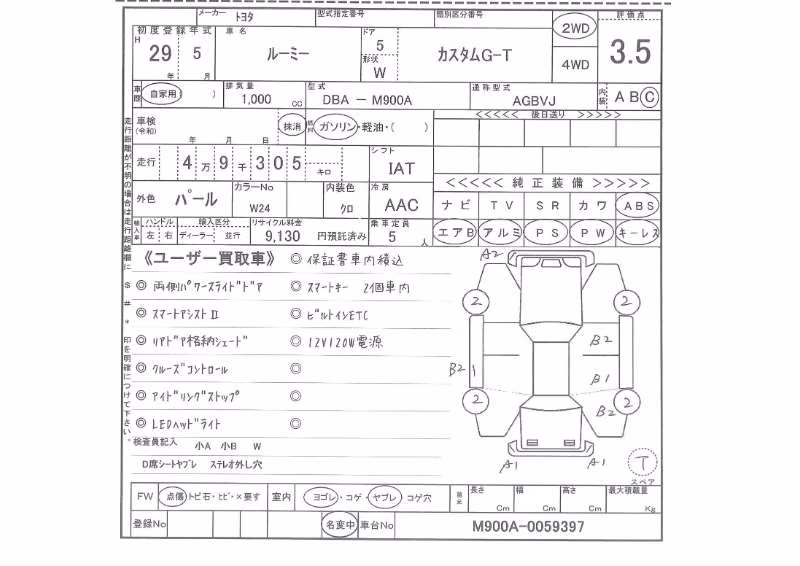 メーカー トヨタ 型式指定番号 類別区分番号
初度登録年式 車名 ドア 2WD 評価点
H 29 年 5 月 ルーミー 5 形状 W カスタムG-T 4WD 3.5
車歴 自家用( ) 排気量 1,000 cc 型式 DBA - M900A 通称型式 AGBVJ 内装 A B C
車検 (令和) 年 月 日 抹消 燃料 ガソリン・軽油・( ) <<<<< 後日送り >>>>>
走行 4万9千305 キロ シフト IAT
<<<<< 純正装備 >>>>>
外色 パール カラーNo W24 内装色 クロ 冷房 AAC ナビ TV SR カワ ABS
輸入車 ハンドル 左 右 輸入区分 ディーラー 並行 リサイクル料金 9,130 円預託済み 乗車定員 5 人 エアB アルミ PS PW キーレス
走行距離が不明の場合は走行距離欄に $ # * 印を明確につけて下さい。
《ユーザー買取車》 ◎ 保証書車内積込
◎ 両側パワースライドドア ◎ スマートキー 2個車内
◎ スマートアシストⅡ ◎ ビルトインETC
◎ リアドア格納シェード ◎ 12V120W電源
◎ クルーズコントロール ◎
◎ アイドリングストップ ◎
◎ LEDヘッドライト ◎
検査員記入 小A 小B W
D席シートヤブレ ステレオ外し穴
A2
2 2
B2
B2 1 B1
2 B2 2
A1 A1 T
スペア
FW 点傷・トビ石・ヒビ・×要す 室内 ヨゴレ・コゲ・ヤブレ・コゲ穴 長さ Cm 幅 Cm 高さ Cm 最大積載量 Kg
登録No 名変中 車台No M900A-0059397